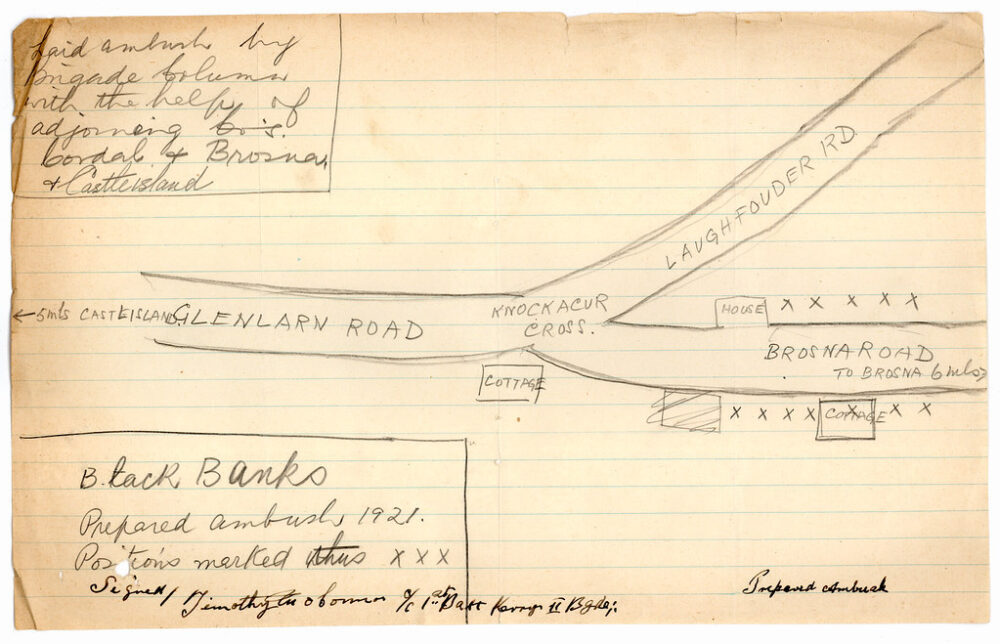 Laid ambush by
Brigade Column
with the help of
adjoining Co's.
Cordal & Brosna,
& Castleisland
LAUGHFOUDER RD.
HOUSE X X X X X
← 5 mls CASTEISLAND. GLENLARN ROAD
KNOCKACUR
CROSS.
BROSNA ROAD
TO BROSNA 6 mls >
COTTAGE
X X X X COTTAGE X X X
Black Banks
Prepared ambush 1921.
Positions marked thus X X X
Signed / Timothy O'Connor O/C 1st Batt Kerry II Bgde;
Prepared Ambush